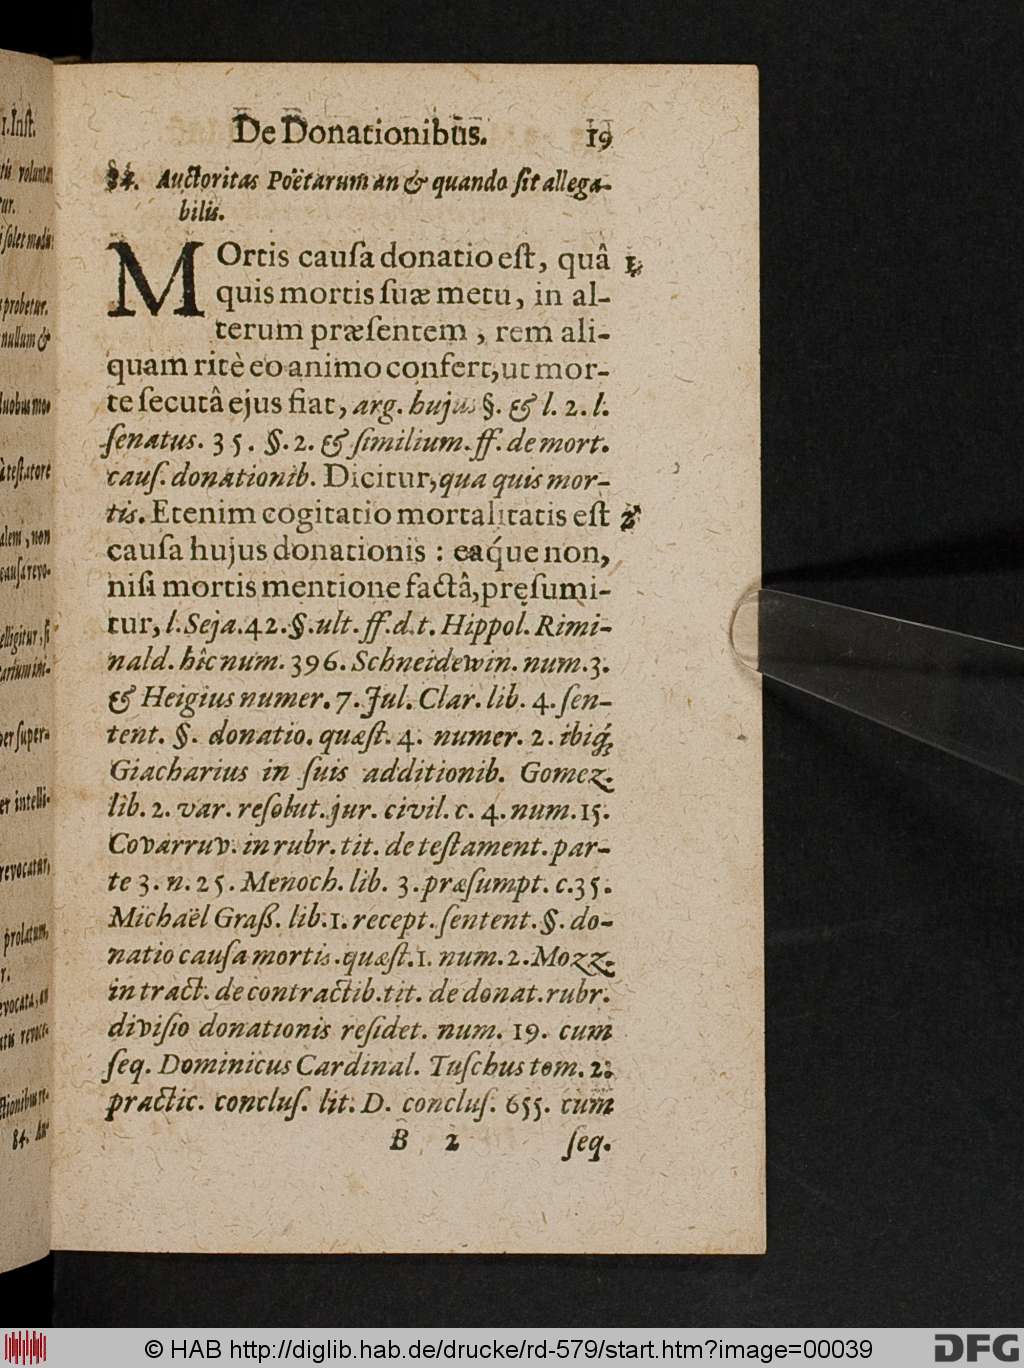 De Donationibus. 19
84. Auctoritas Poëtarum an & quando sit allega-
bilis.
MOrtis causa donatio est, quâ 1.
quis mortis suæ metu, in al-
terum præsentem, rem ali-
quam ritè eo animo confert, ut mor-
te secutâ ejus fiat, arg. hujus §. & l. 2. l.
senatus. 35. §. 2. & similium. ff. de mort.
caus. donationib. Dicitur, qua quis mor-
tis. Etenim cogitatio mortalitatis est 2
causa hujus donationis: eaq́ue non,
nisi mortis mentione factâ, pręsumi-
tur, l. Seja. 42. §. ult. ff. d. t. Hippol. Rimi-
nald. hîc num. 396. Schneidewin. num. 3.
& Heigius numer. 7. Jul. Clar. lib. 4. sen-
tent. §. donatio. quæst. 4. numer. 2. ibiq́;
Giacharius in suis additionib. Gomez.
lib. 2. var. resolut. jur. civil. c. 4. num. 15.
Covarruv. in rubr. tit. de testament. par-
te 3. n. 25. Menoch. lib. 3. præsumpt. c. 35.
Michaël Graß. lib. 1. recept. sentent. §. do-
natio causa mortis. quæst. 1. num. 2. Mozz.
in tract. de contractib. tit. de donat. rubr.
divisio donationis residet. num. 19. cum
seq. Dominicus Cardinal. Tuschus tom. 2.
practic. conclus. lit. D. conclus. 655. cum
B 2 seq.
© HAB http://diglib.hab.de/drucke/rd-579/start.htm?image=00039
DFG